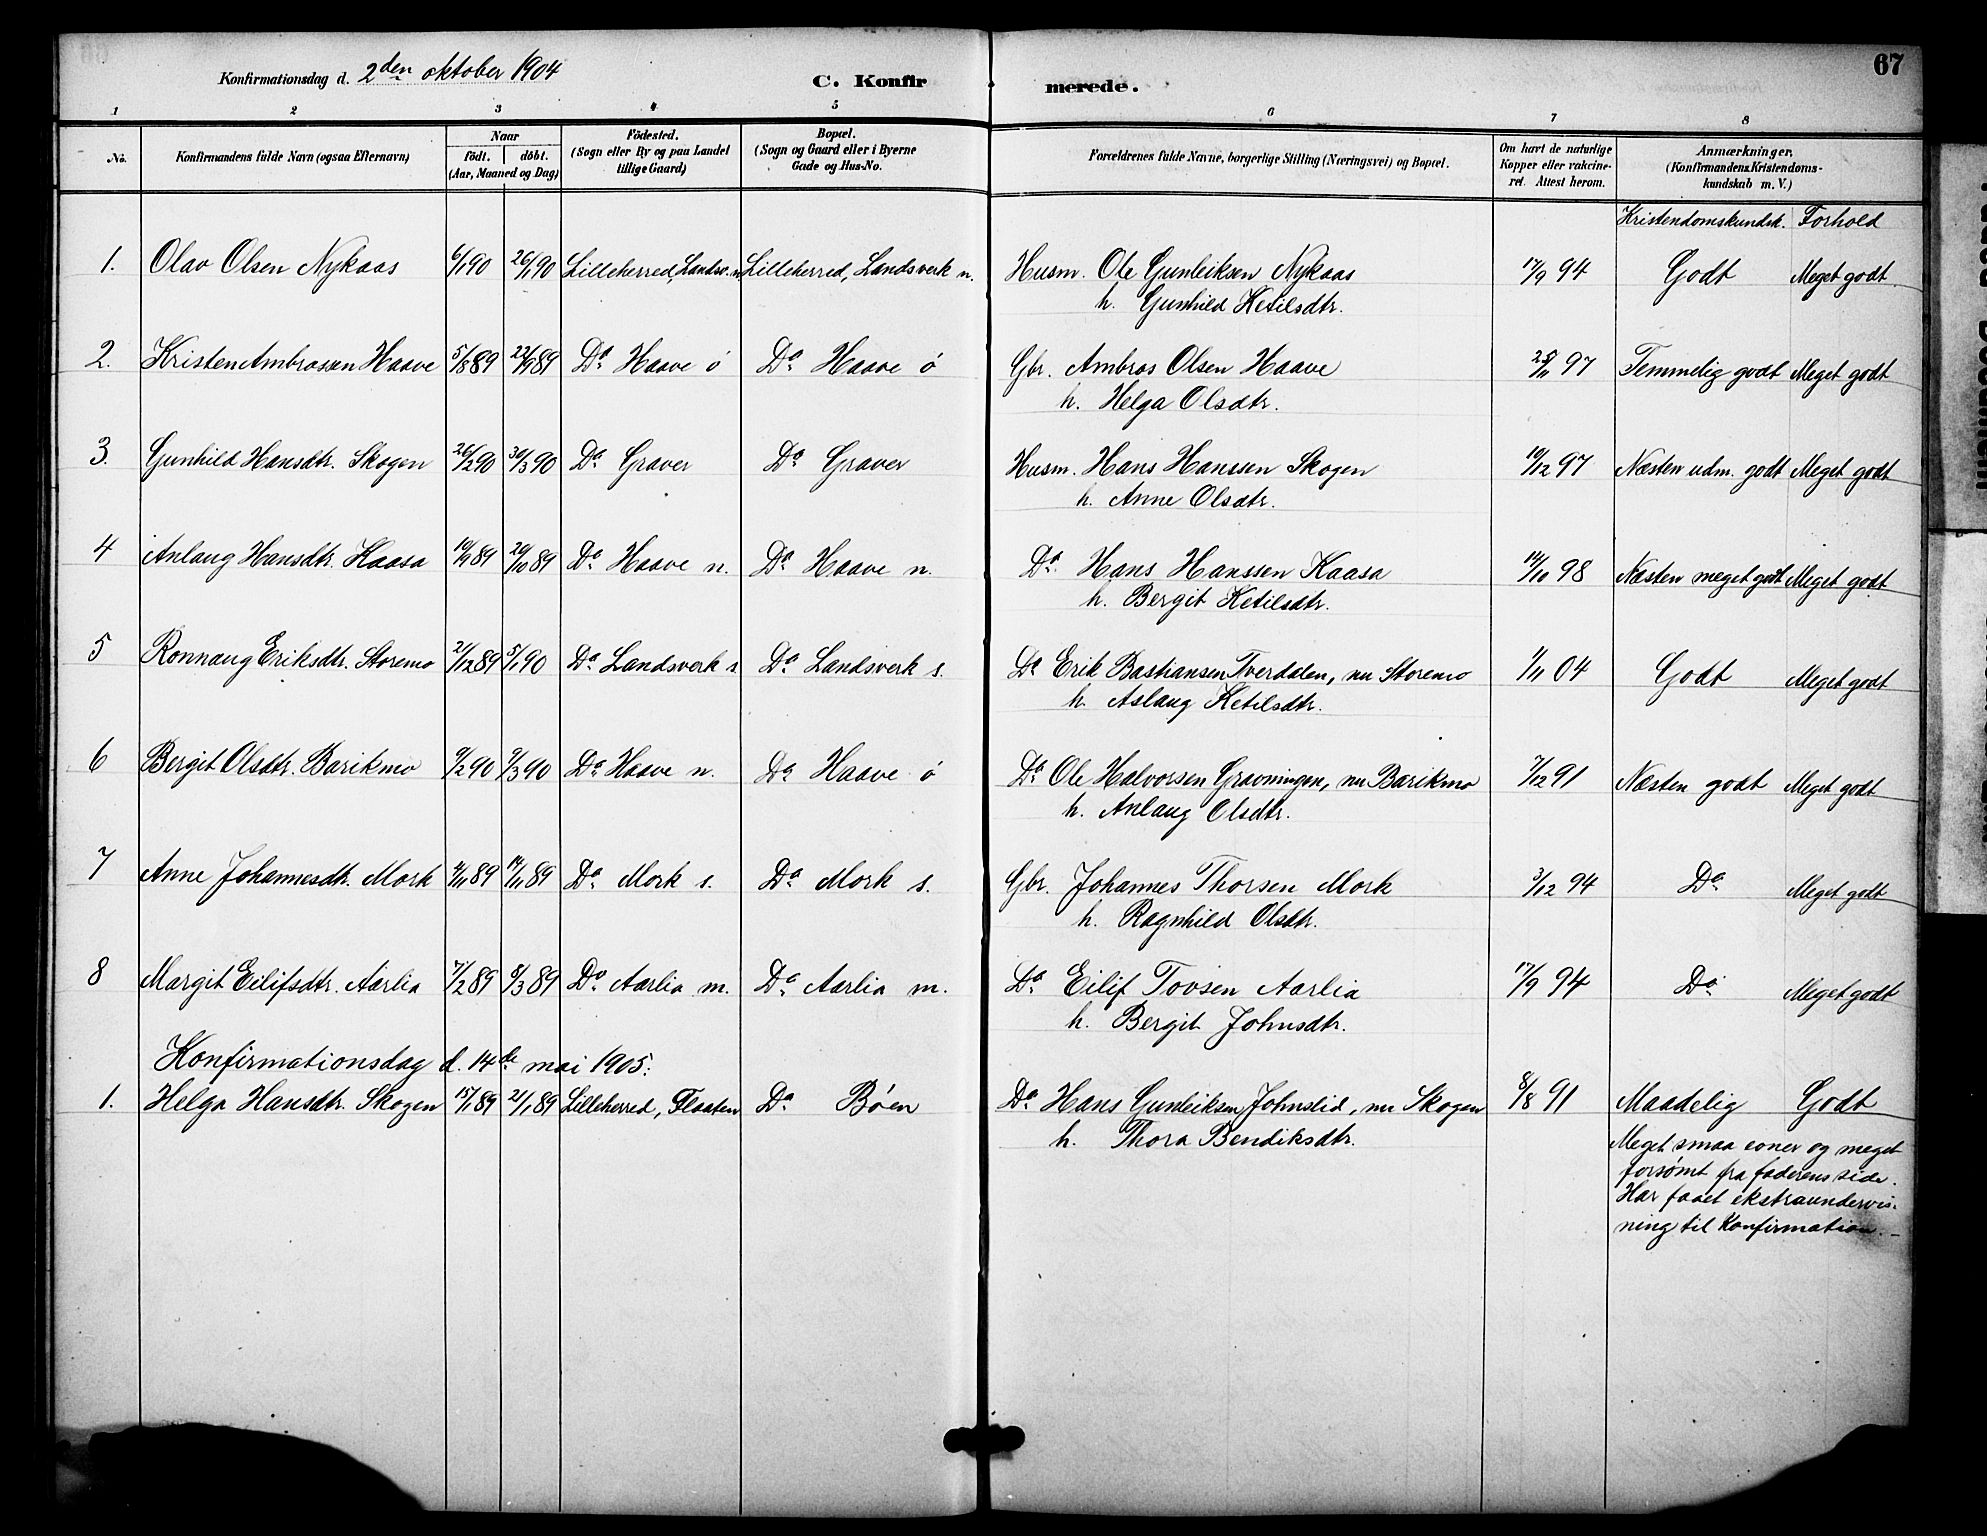 Konfirmationsdag d. 2den oktober 1904
C. Konfirmerede.
67
1 2 3 4 5 6 7 8
No. Konfirmandens fulde Navn (ogsaa Efternavn) Naar födt. döbt. (Aar, Maaned og Dag) Födested. (Sogn eller By og paa Landet tillige Gaard) Bopæl. (Sogn og Gaard eller i Byerne Gade og Hus-No. Forældrenes fulde Navne, borgerlige Stilling (Næringsvei) og Bopæl. Om havt de naturlige Kopper eller vakcineret. Attest herom. Anmærkninger. (Konfirmandens Kristendomskundskab m. V.)
Kristendomskundsk. Forhold
1. Olav Olsen Nykaas 6/1 90 26/1 90 Lilleherred, Landsv. n. Lilleherred, Landsverk n. Husm. Ole Gunleiksen Nykaas 17/9 94 Godt Meget godt
h. Gunhild Ketilsdtr.
2. Kristen Ambrosen Haave 5/8 89 22/9 89 Do Haave ö Do Haave ö Gbr. Ambros Olsen Haave 97 Temmelig godt Meget godt
h. Helga Olsdtr.
3. Gunhild Hansdtr. Skogen 26/2 90 30/3 90 Do Graver Do Graver Husm. Hans Hanssen Skogen 10/12 97 Næsten udm. godt Meget godt
h. Anne Olsdtr.
4 Anlaug Hansdtr. Kaasa 10/9 89 20/10 89 Do Haave n. Do Haave n. Do Hans Hanssen Kaasa 14/10 98 Næsten meget godt Meget godt
h. Bergit Ketilsdtr.
5 Ronnaug Eriksdtr. Storemo 21/12 89 5/1 90 Do Landsverk s. Do Landsverk s. Do Erik Bastiansen Tverdalen, nu Storemo 1/11 04 Godt Meget godt
h. Aslaug Ketilsdtr.
6 Bergit Olsdtr. Barikmo 9/2 90 9/3 90 Do Haave n. Do Haave ö Do Ole Halvorsen Gravningen, nu Barikmo 7/12 91 Næsten godt Meget godt
h. Anlaug Olsdtr.
7 Anne Johannesdtr. Mork 4/11 89 17/11 89 Do Mork s. Do Mork s. Gbr. Johannes Thorsen Mork 3/12 94 Do Meget godt
h. Ragnhild Olsdtr.
8 Margit Eilifsdtr. Aarlia 7/2 89 8/3 89 Do Aarlia m. Do Aarlia m. Do Eilif Tovsen Aarlia 17/9 94 Do Meget godt
h. Bergit Johnsdtr.
Konfirmationsdag d. 14de mai 1905:
1. Helga Hansdtr. Skogen 15/1 89 21/1 89 Lilleherred, Flaaten Do Böen Do Hans Gunleiksen Johnslid, nu Skogen 8/8 91 Maadelig Godt
h. Thora Bendiksdtr.
Meget smaa evner og meget
forsömt fra faderens side.
Har faaet ekstraundervis-
ning til Konfirmation. –